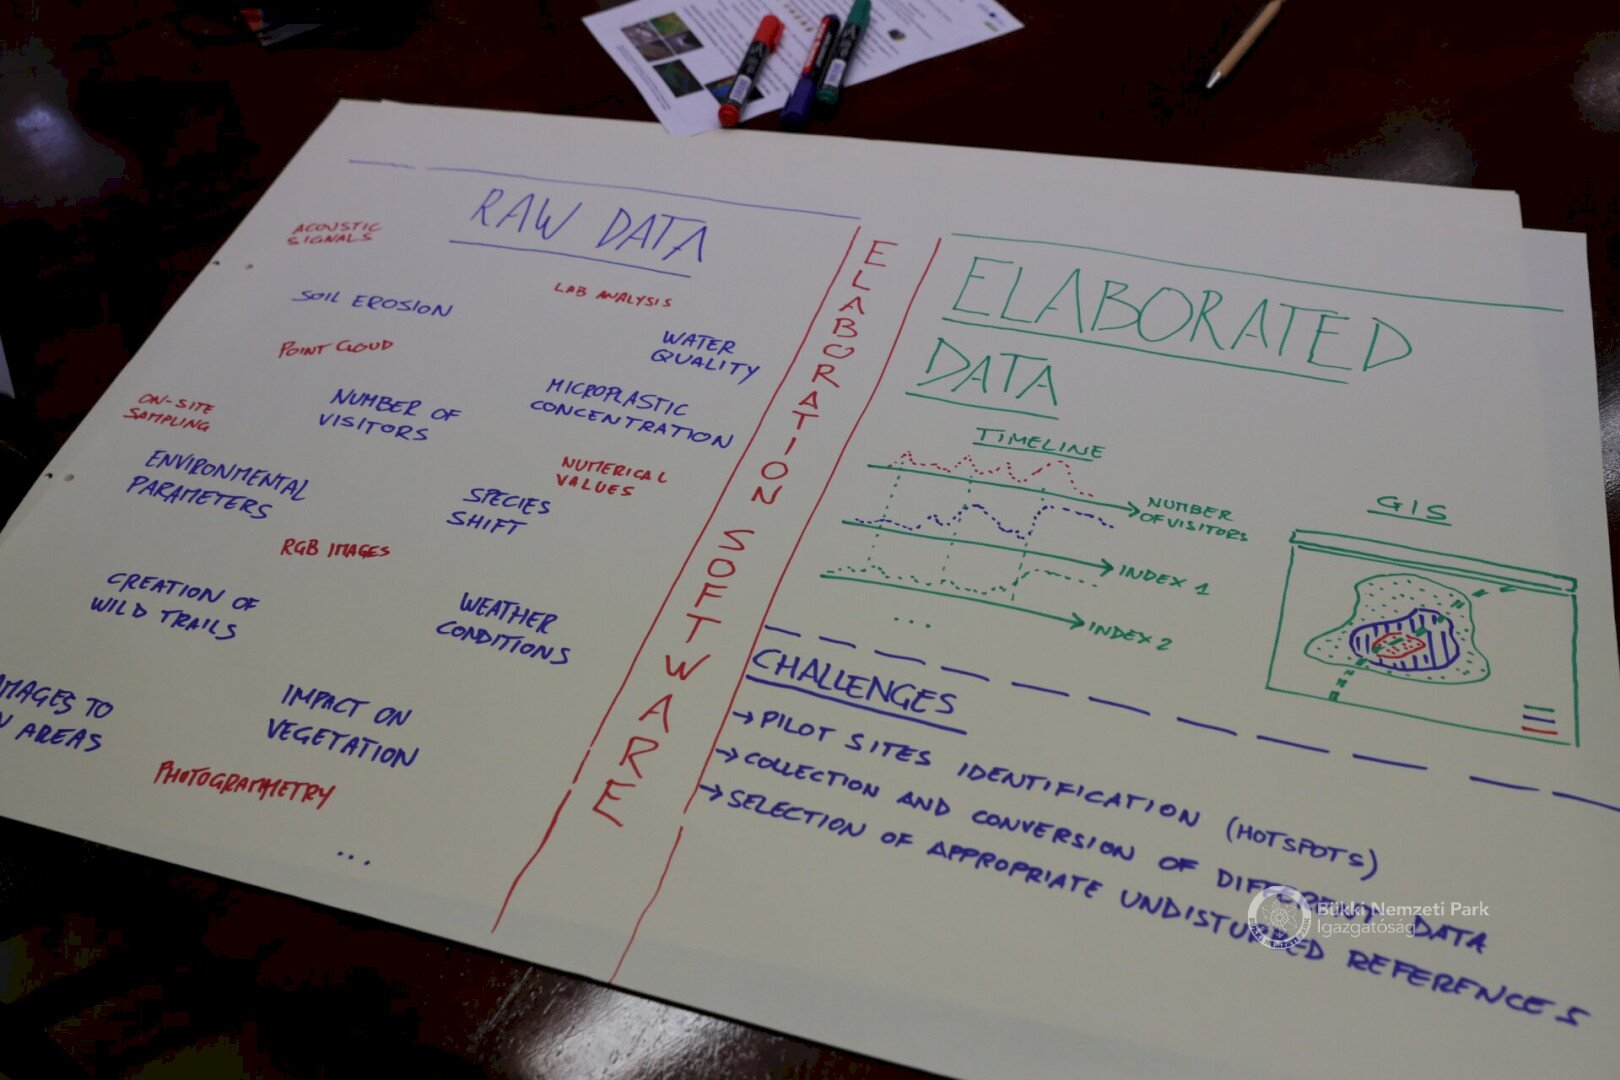 RAW DATA
ACOUSTIC
SIGNALS
SOIL EROSION
LAB ANALYSIS
POINT CLOUD
WATER
QUALITY
ON-SITE
SAMPLING
NUMBER OF
VISITORS
MICROPLASTIC
CONCENTRATION
ENVIRONMENTAL
PARAMETERS
NUMERICAL
VALUES
SPECIES
SHIFT
RGB IMAGES
CREATION OF
WILD TRAILS
WEATHER
CONDITIONS
AMAGES TO
AREAS
IMPACT ON
VEGETATION
PHOTOGRAMMETRY
...
ELABORATION SOFTWARE
ELABORATED
DATA
TIMELINE
NUMBER
OF VISITORS
INDEX 1
INDEX 2
...
GIS
CHALLENGES
→ PILOT SITES IDENTIFICATION (HOTSPOTS)
→ COLLECTION AND CONVERSION OF DIFFERENT DATA
→ SELECTION OF APPROPRIATE UNDISTURBED REFERENCES
Bükki Nemzeti Park
Igazgatóság